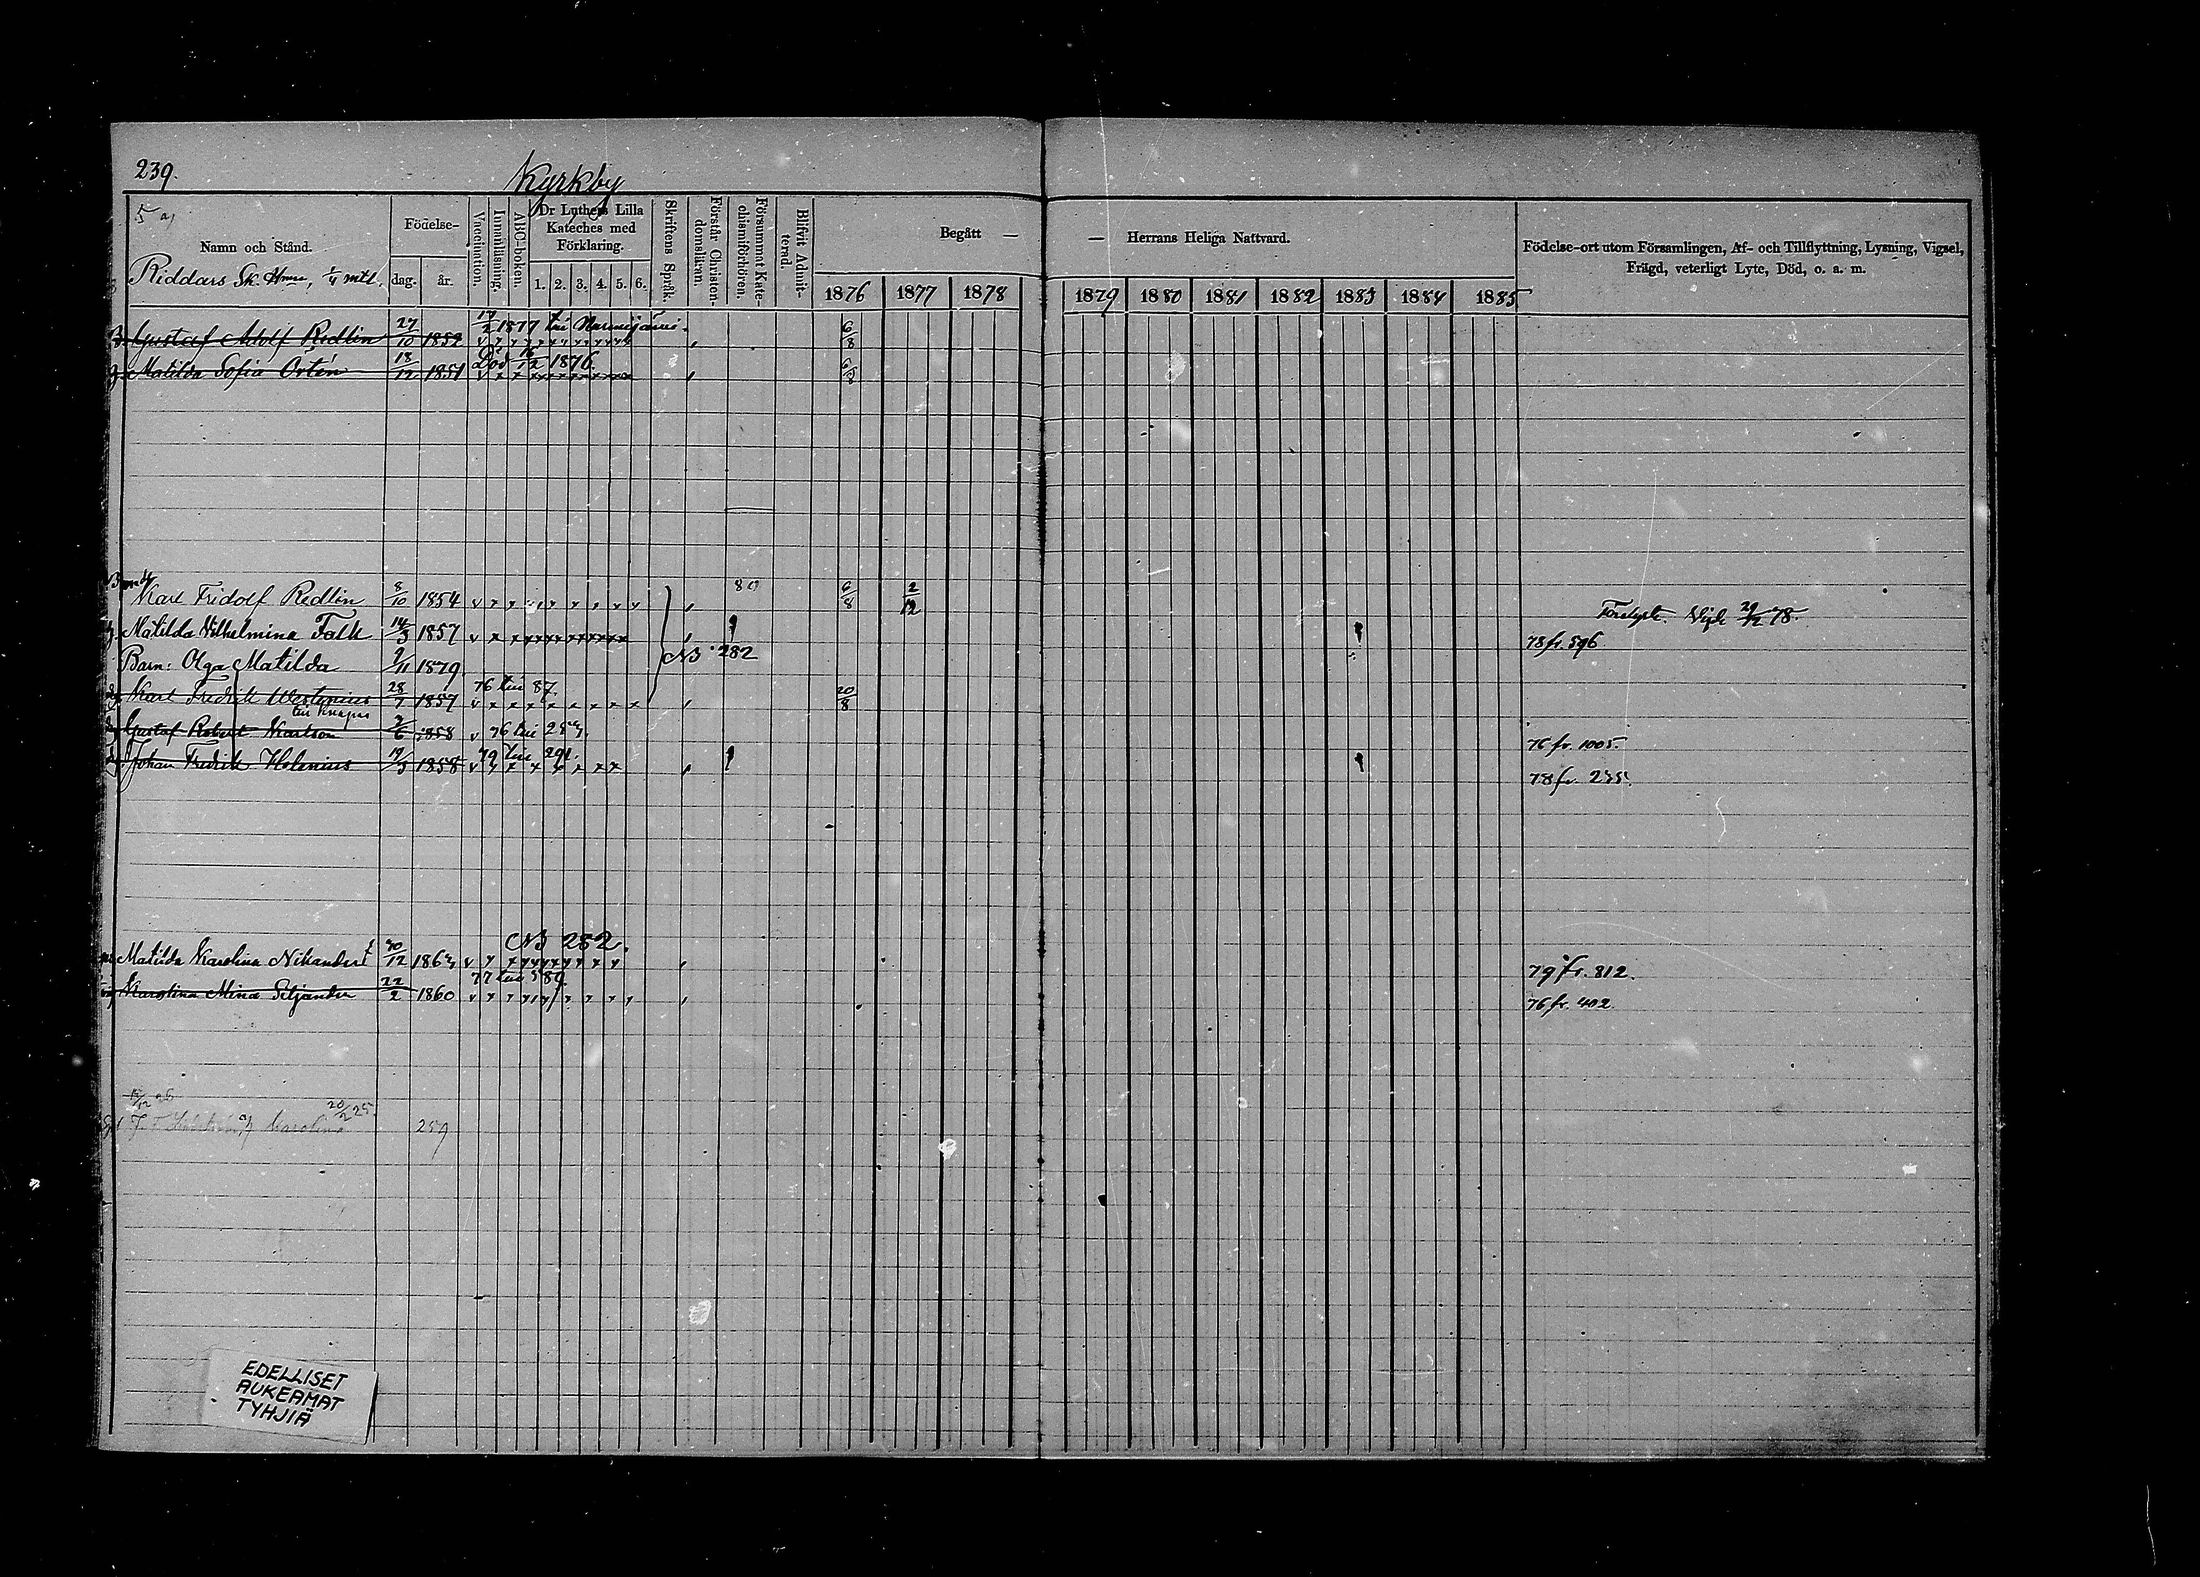 239.
Kyrkby
5 a)
Namn och Stånd.
Riddars Sk. Hmn, 1/4 mtl.
Födelse-
dag. år.
Vaccination.
Innanläsning.
ABC-boken.
Dr Luthers Lilla
Kateches med
Förklaring.
1. 2. 3. 4. 5. 6.
Skriftens Språk.
Förstår Christen-
domsläran.
Försummat Kate-
chismiförhören.
Blifvit Admit-
terad.
Begått —
1876 1877 1878
— Herrans Heliga Nattvard.
1879 1880 1881 1882 1883 1884 1885
Födelse-ort utom Församlingen, Af- och Tillflyttning, Lysning, Vigsel,
Frägd, veterligt Lyte, Död, o. a. m.
B. Gustaf Adolf Redlin 27/10 1852 17/2 1877 till Nurmijärvi. 6/8
h. Matilda Sofia Ortén 18/12 1851 Död 1876. 6/8
Karl Fridolf Redlin 8/10 1854 80 6/8 2/12 Vigde 29/12 78.
h. Matilda Vilhelmina Falk 14/3 1857 78 fr. 596
Barn: Olga Matilda 2/11 1879. NB 282
Karl Fredrik Westenius 28/7 1857 76 till 87. 20/8
till Knapas
Gustaf Robert Karlson 2/6 1858 v 76 till 253. 76 fr. 1005.
Johan Fredrik Helenius 19/3 1858 79 till 291. 78 fr. 235.
NB 282.
Matilda Karolina Nikander 30/12 1863 79 fr. 812.
77 till 589.
Karolina Mina Siljander 22/2 1860 76 fr. 402.
20/2 25
Karolina 259
EDELLISET
AUKEAMAT
TYHJIÄ